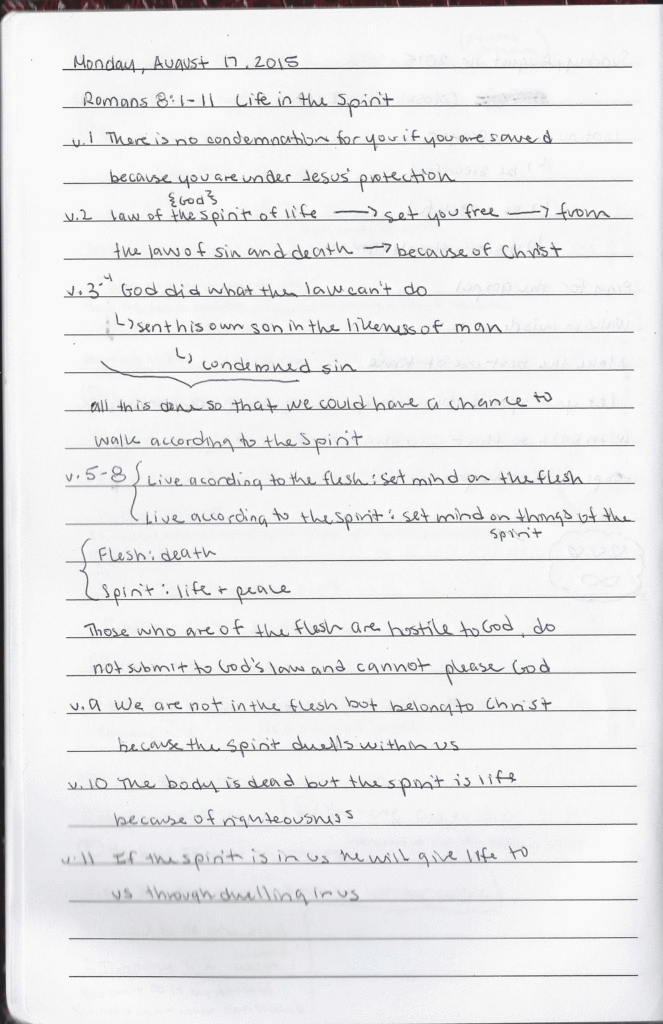 Monday, August 17, 2015
Romans 8:1-11 Life in the Spirit
v.1 There is no condemnation for you if you are saved
because you are under Jesus' protection
{God}
v.2 law of the spirit of life → set you free → from
the law of sin and death → because of Christ
v.3-4 God did what the law can't do
↳ sent his own son in the likeness of man
↳ condemned sin
all this done so that we could have a chance to
walk according to the Spirit
v.5-8 { Live acording to the flesh: set mind on the flesh
Live according to the spirit: set mind on things of the
spirit
{ Flesh: death
Spirit: life + peace
Those who are of the flesh are hostile to God, do
not submit to God's law and cannot please God
v.9 We are not in the flesh but belong to Christ
because the Spirit dwells within us
v.10 The body is dead but the spirit is life
because of righteousness
v.11 If the spirit is in us he will give life to
us through dwelling in us